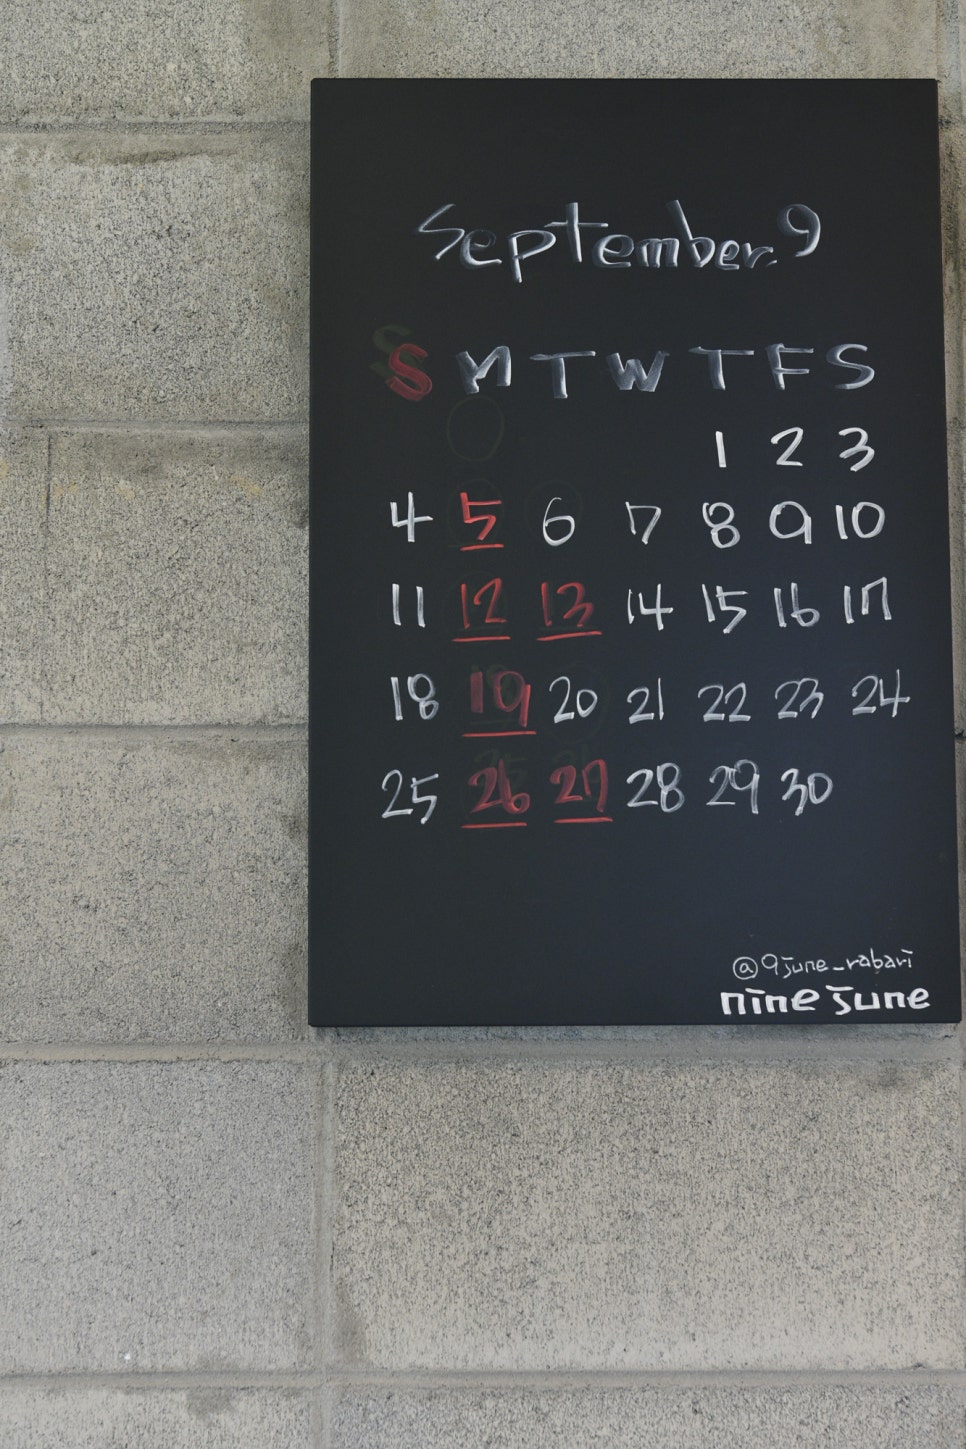 September. 9
S M T W T F S
1 2 3
4 5 6 7 8 9 10
11 12 13 14 15 16 17
18 19 20 21 22 23 24
25 26 27 28 29 30
@9june_rabari
nine june